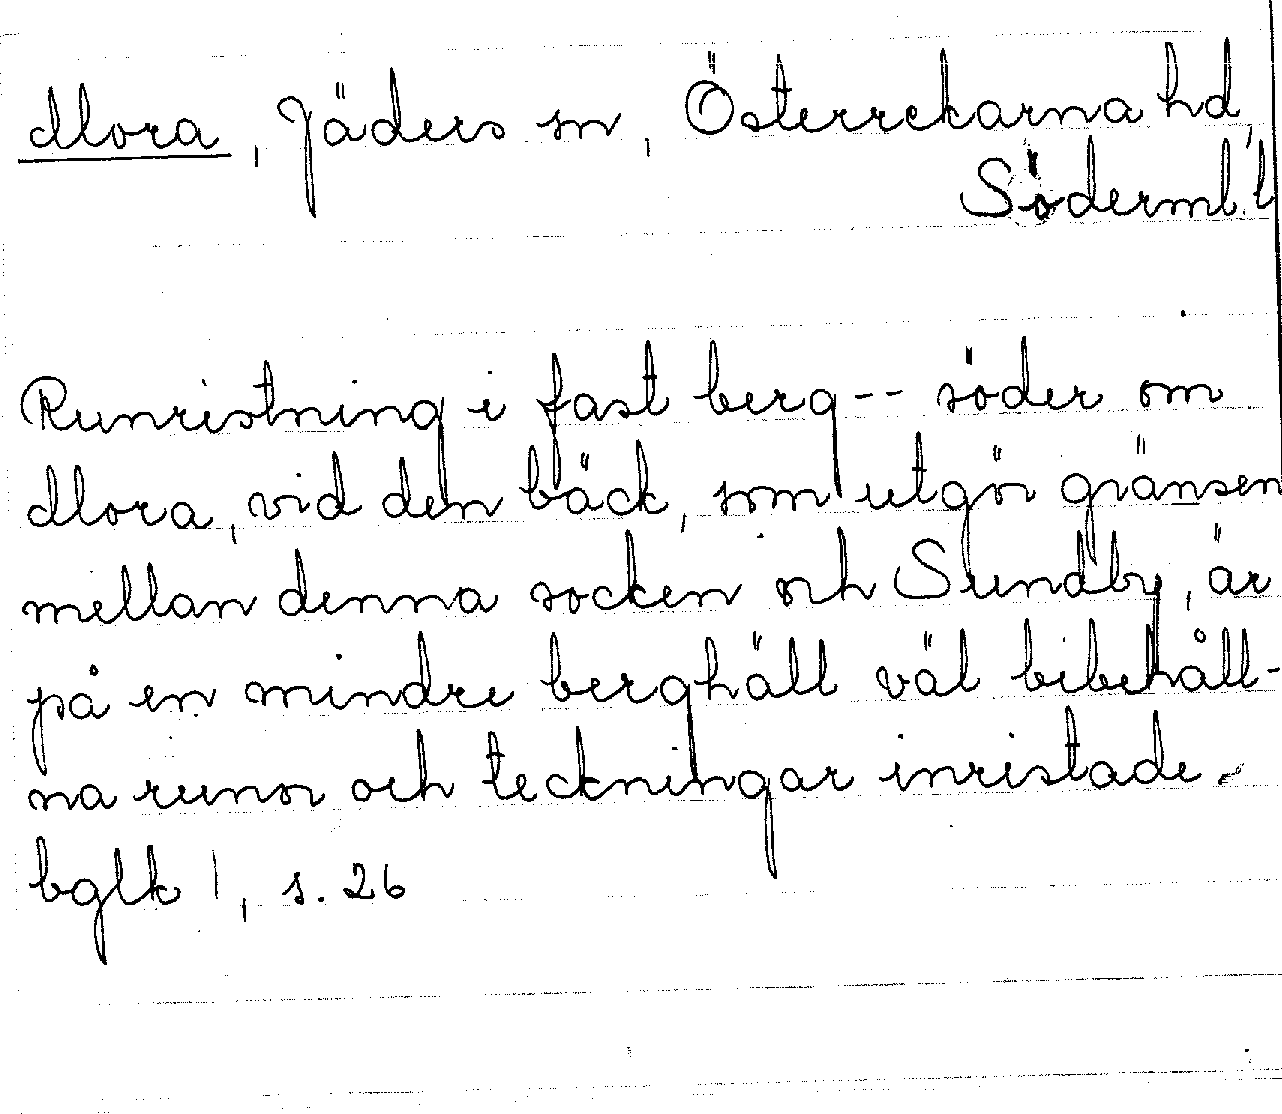 Mora, Jäders sn, Österrekarna hd,
Söderml. l
Runristning i fast berg -- söder om
Mora, vid den bäck, som utgör gränsen
mellan denna socken och Sundby, är
på en mindre berghäll väl bibehåll-
na runor och teckningar inristade.
bglk 1, s. 26